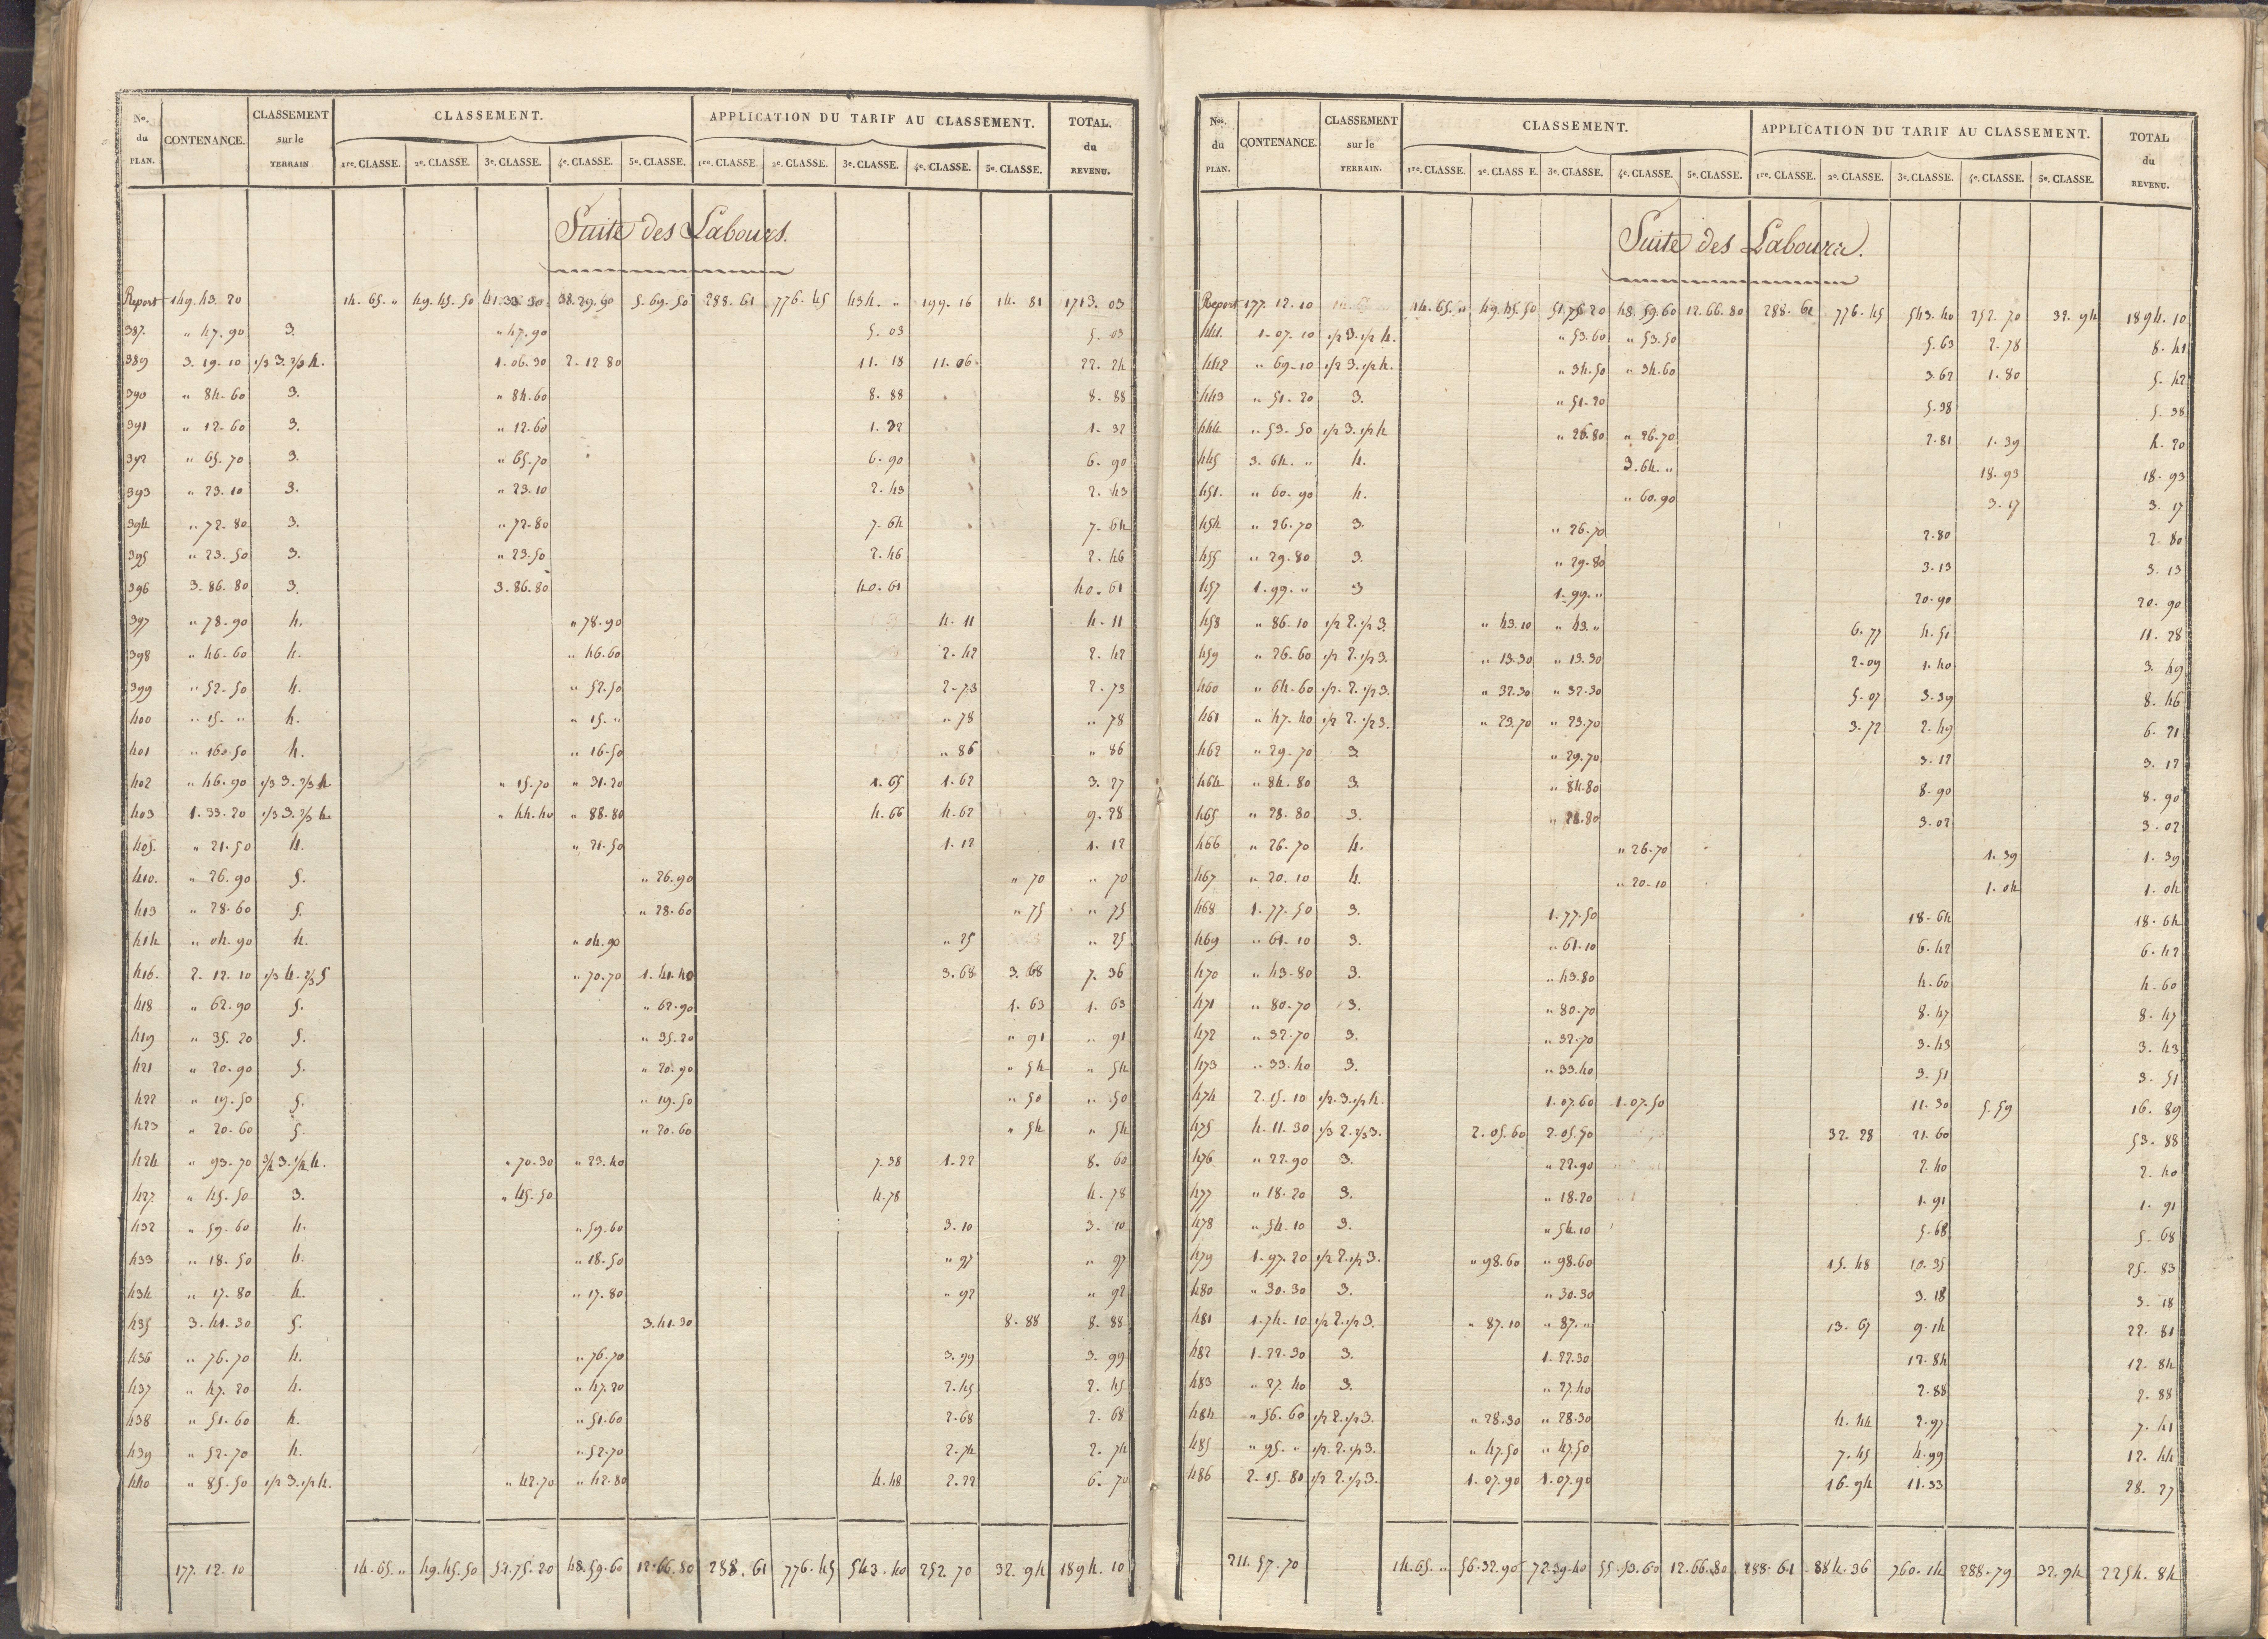 No. du PLAN. CONTENANCE. CLASSEMENT sur le TERRAIN CLASSEMENT. APPLICATION DU TARIF AU CLASSEMENT. TOTAL. du REVENU.
1re. CLASSE. 2e. CLASSE. 3e. CLASSE. 4e. CLASSE. 5e. CLASSE. 1re. CLASSE. 2e. CLASSE. 3e. CLASSE. 4e. CLASSE. 5e. CLASSE.
Suite des Labours.
Report 149.43.20 14.65.„ 49.45.50 38.29.90 5.69.50 288.61 776.45 434.„ 199.16 14.81 1713.03
387. „ 47.90 3. „ 47.90 5.03 5.03
389 3.19.10 1/3 3. 2/3 4. 1.06.30 2.12.80 11.18 11.06 22.24
390 „ 84.60 3. „ 84.60 8.88 8.88
391 „ 12.60 3. „ 12.60 1.32 1.32
392 „ 65.70 3. „ 65.70 6.90 6.90
393 „ 23.10 3. „ 23.10 2.43 2.43
394 „ 72.80 3. „ 72.80 7.64 7.64
395 „ 23.50 3. „ 23.50 2.46 2.46
396 3.86.80 3. 3.86.80 40.61 40.61
397 „ 78.90 4. „ 78.90 4.11 4.11
398 „ 46.60 4. „ 46.60 2.42 2.42
399 „ 52.50 4. „ 52.50 2.73 2.73
400 „ 15.„ 4. „ 15.„ „ 78 „ 78
401 „ 16.50 4. „ 16.50 „ 86 „ 86
402 „ 46.90 1/3 3. 2/3 4 „ 15.70 „ 31.20 1.65 1.62 3.27
403 1.33.20 1/3 3. 2/3 4. „ 44.40 „ 88.80 4.66 4.62 9.28
405. „ 21.50 4. „ 21.50 1.12 1.12
410. „ 26.90 5. „ 26.90 „ 70 „ 70
413 „ 28.60 5. „ 28.60 „ 75 „ 75
414 „ 04.90 4. „ 04.90 „ 25 „ 25
416. 2.12.10 1/3 4. 2/3 5 „ 70.70 1.41.40 3.68 3.68 7.36
418 „ 62.90 5. „ 62.90 1.63 1.63
419 „ 35.20 5. „ 35.20 „ 91 „ 91
421 „ 20.90 5. „ 20.90 „ 54 „ 54
422 „ 19.50 5. „ 19.50 „ 50 „ 50
423 „ 20.60 5. „ 20.60 „ 54 „ 54
424 „ 93.70 „ 70.30 „ 23.40 7.38 1.22 8.60
427. „ 45.50 3. „ 45.50 4.78 4.78
432 „ 59.60 4. „ 59.60 3.10 3.10
433 „ 18.50 4. „ 18.50 „ 97 „ 97
434 „ 17.80 4. „ 17.80 „ 92 „ 92
435 3.41.30 5. 3.41.30 8.88 8.88
436 „ 76.70 4. „ 76.70 3.99 3.99
437 „ 47.20 4. „ 47.20 2.45 2.45
438 „ 51.60 4. „ 51.60 2.68 2.68
439 „ 52.70 4. „ 52.70 2.74 2.74
440 „ 85.50 1/2 3. 1/2 4. „ 42.70 „ 42.80 4.48 2.22 6.70
177.12.10 14.65.„ 49.45.50 51.75.20 48.59.60 12.66.80 288.61 776.45 543.40 252.70 32.94 1894.10
Nos. du PLAN. CONTENANCE. CLASSEMENT sur le TERRAIN. CLASSEMENT. APPLICATION DU TARIF AU CLASSEMENT. TOTAL du REVENU.
1re. CLASSE. 2e. CLASS E. 3e. CLASSE. 4e. CLASSE. 5e. CLASSE. 1re. CLASSE. 2e. CLASSE. 3e. CLASSE. 4e. CLASSE. 5e. CLASSE.
Suite des Labours.
Report 177.12.10 14.65.„ 49.45.50 51.75.20 48.59.60 12.66.80 288.61 776.45 543.40 252.70 32.94 1894.10
441. 1.07.10 1/2 3. 1/2 4. „ 53.60 „ 53.50 5.63 2.78 8.41
442 „ 69.10 1/2 3. 1/2 4. „ 34.50 „ 34.60 3.62 1.80 5.42
443 „ 51.20 3. „ 51.20 5.38 5.38
444 „ 53.50 1/2 3. 1/2 4 „ 26.80 „ 26.70 2.81 1.39 4.20
445 3.64.„ 4. 3.64.„ 18.93 18.93
451. „ 60.90 4. „ 60.90 3.17 3.17
454 „ 26.70 3. „ 26.70 2.80 2.80
455 „ 29.80 3. „ 29.80 3.13 3.13
457 1.99.„ 3 1.99.„ 20.90 20.90
458 „ 86.10 1/2 2. 1/2 3. „ 43.10 „ 43.„ 6.77 4.51 11.28
459 „ 26.60 1/2 2. 1/2 3. „ 13.30 „ 13.30 2.09 1.40 3.49
460 „ 64.60 1/2. 2. 1/2 3. „ 32.30 „ 32.30 5.07 3.39 8.46
461 „ 47.40 1/2 2. 1/2 3. „ 23.70 „ 23.70 3.72 2.49 6.21
462 „ 29.70 3 „ 29.70 3.12 3.12
464 „ 84.80 3. „ 84.80 8.90 8.90
465 „ 28.80 3. „ 28.80 3.02 3.02
466 „ 26.70 4. „ 26.70 1.39 1.39
467 „ 20.10 4. „ 20.10 1.04 1.04
468 1.77.50 3. 1.77.50 18.64 18.64
469 „ 61.10 3. „ 61.10 6.42 6.42
470 „ 43.80 3. „ 43.80 4.60 4.60
471 „ 80.70 3. „ 80.70 8.47 8.47
472 „ 32.70 3. „ 32.70 3.43 3.43
473 „ 33.40 3. „ 33.40 3.51 3.51
474 2.15.10 1/2. 3. 1/2 4. 1.07.60 1.07.50 11.30 5.59 16.89
475 4.11.30 2.05.60 2.05.70 32.28 21.60 53.88
476 „ 22.90 3. „ 22.90 2.40 2.40
477 „ 18.20 3. „ 18.20 1.91 1.91
478 „ 54.10 3. „ 54.10 5.68 5.68
479 1.97.20 1/2 2. 1/2 3. „ 98.60 „ 98.60 15.48 10.35 25.83
480 „ 30.30 3. „ 30.30 3.18 3.18
481 1.74.10 1/2 2. 1/2 3. „ 87.10 „ 87.„ 13.67 9.14 22.81
482 1.22.30 3. 1.22.30 12.84 12.84
483 „ 27.40 3. „ 27.40 2.88 2.88
484 „ 56.60 1/2 2. 1/2 3. „ 28.30 „ 28.30 4.44 2.97 7.41
485 „ 95.„ 1/2. 2. 1/2 3. „ 47.50 „ 47.50 7.45 4.99 12.44
486 2.15.80 1/2 2. 1/2 3. 1.07.90 1.07.90 16.94 11.33 28.27
211.57.70 14.65.„ 56.32.90 72.39.40 55.53.60 12.66.80 288.61 884.36 760.14 288.79 32.94 2254.84